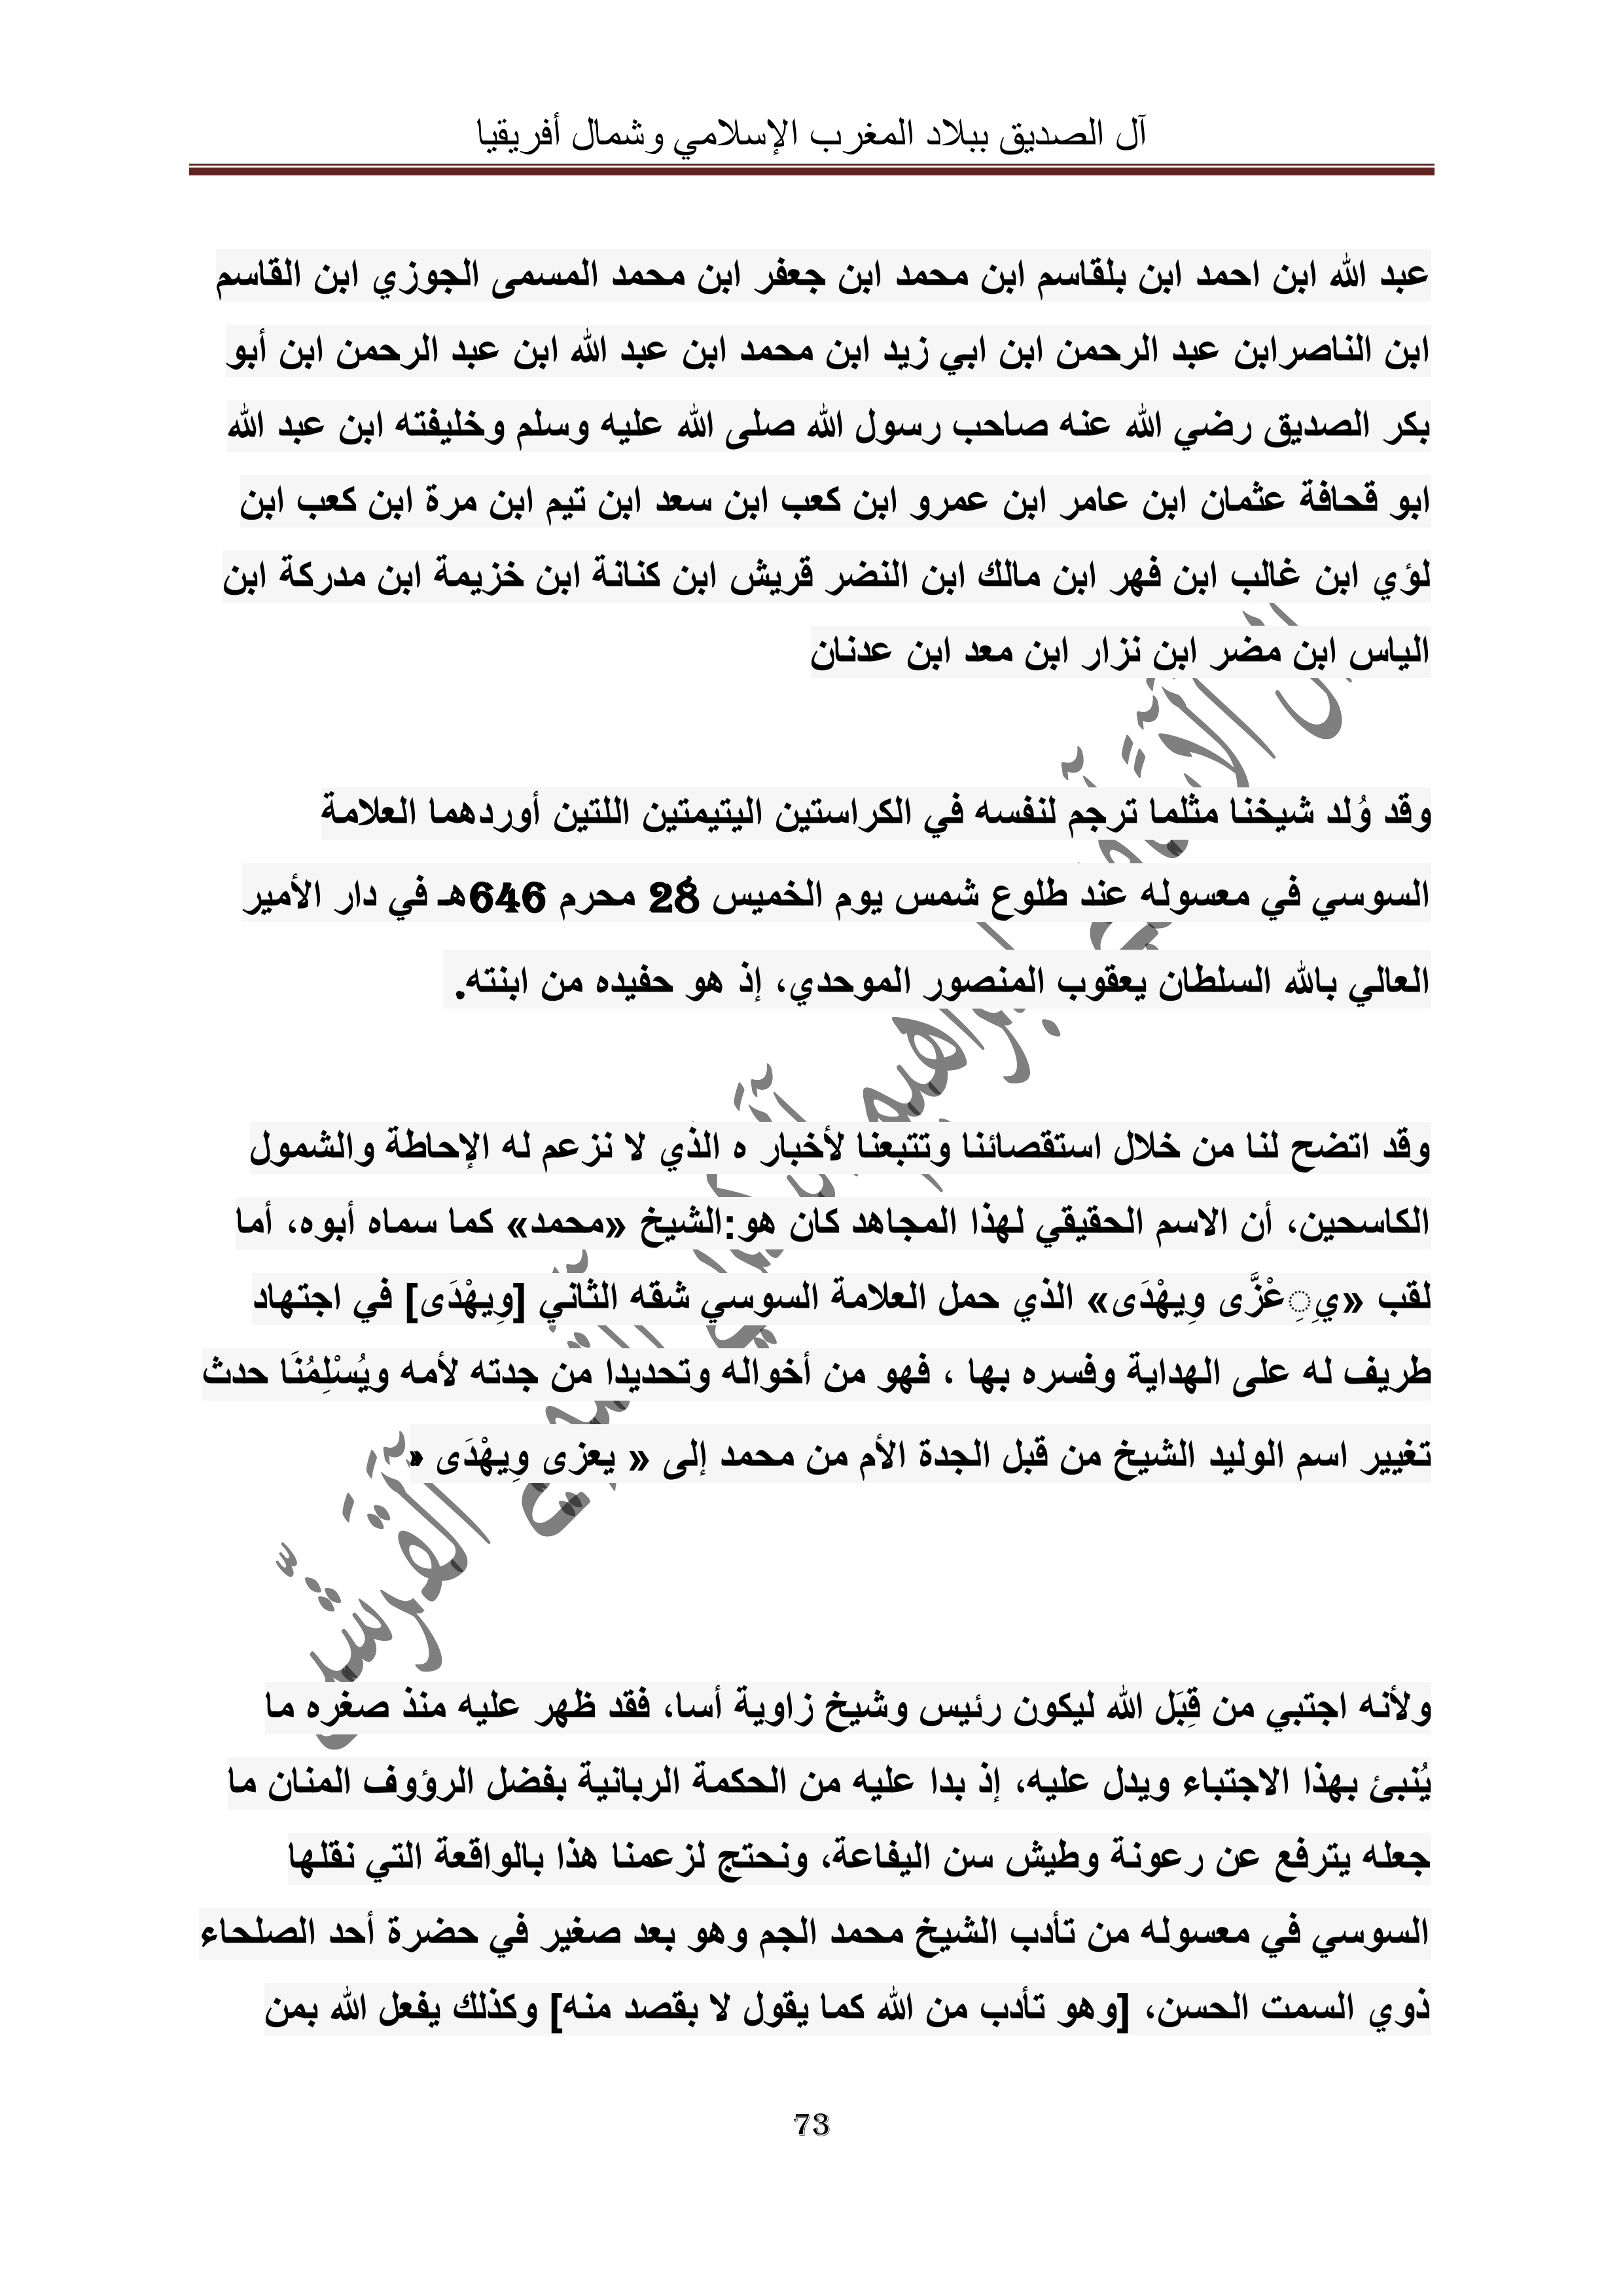 آل الصديق ببلاد المغرب الإسلامي وشمال أفريقيا
عبد الله ابن احمد ابن بلقاسم ابن محمد ابن جعفر ابن محمد المسمى الجوزي ابن القاسم
ابن الناصرابن عبد الرحمن ابن ابي زيد ابن محمد ابن عبد الله ابن عبد الرحمن ابن أبو
بكر الصديق رضي الله عنه صاحب رسول الله صلى الله عليه وسلم وخليفته ابن عبد الله
ابو قحافة عثمان ابن عامر ابن عمرو ابن كعب ابن سعد ابن تيم ابن مرة ابن كعب ابن
لؤي ابن غالب ابن فهر ابن مالك ابن النضر قريش ابن كنانة ابن خزيمة ابن مدركة ابن
الياس ابن مضر ابن نزار ابن معد ابن عدنان
وقد وُلد شيخنا مثلما ترجم لنفسه في الكراستين اليتيمتين اللتين أوردهما العلامة
السوسي في معسوله عند طلوع شمس يوم الخميس 28 محرم 646هـ في دار الأمير
العالي بالله السلطان يعقوب المنصور الموحدي، إذ هو حفيده من ابنته.
وقد اتضح لنا من خلال استقصائنا وتتبعنا لأخبار ه الذي لا نزعم له الإحاطة والشمول
الكاسحين، أن الاسم الحقيقي لهذا المجاهد كان هو:الشيخ «محمد» كما سماه أبوه، أما
لقب «يِِعْزَّى وِيهْدَى» الذي حمل العلامة السوسي شقه الثاني [وِيهْدَى] في اجتهاد
طريف له على الهداية وفسره بها ، فهو من أخواله وتحديدا من جدته لأمه ويُسْلِمُنَا حدث
تغيير اسم الوليد الشيخ من قبل الجدة الأم من محمد إلى « يعزى وِيهْدَى «
ولأنه اجتبي من قِبَل الله ليكون رئيس وشيخ زاوية أسا، فقد ظهر عليه منذ صغره ما
يُنبئ بهذا الاجتباء ويدل عليه، إذ بدا عليه من الحكمة الربانية بفضل الرؤوف المنان ما
جعله يترفع عن رعونة وطيش سن اليفاعة، ونحتج لزعمنا هذا بالواقعة التي نقلها
السوسي في معسوله من تأدب الشيخ محمد الجم وهو بعد صغير في حضرة أحد الصلحاء
ذوي السمت الحسن، [وهو تأدب من الله كما يقول لا بقصد منه] وكذلك يفعل الله بمن
73